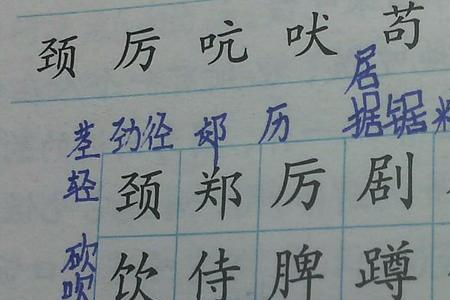 颈厉吭吠苟
居
茎劲径 郑 历 据锯
轻 颈郑厉剧
砍 饮侍脾蹲
吹